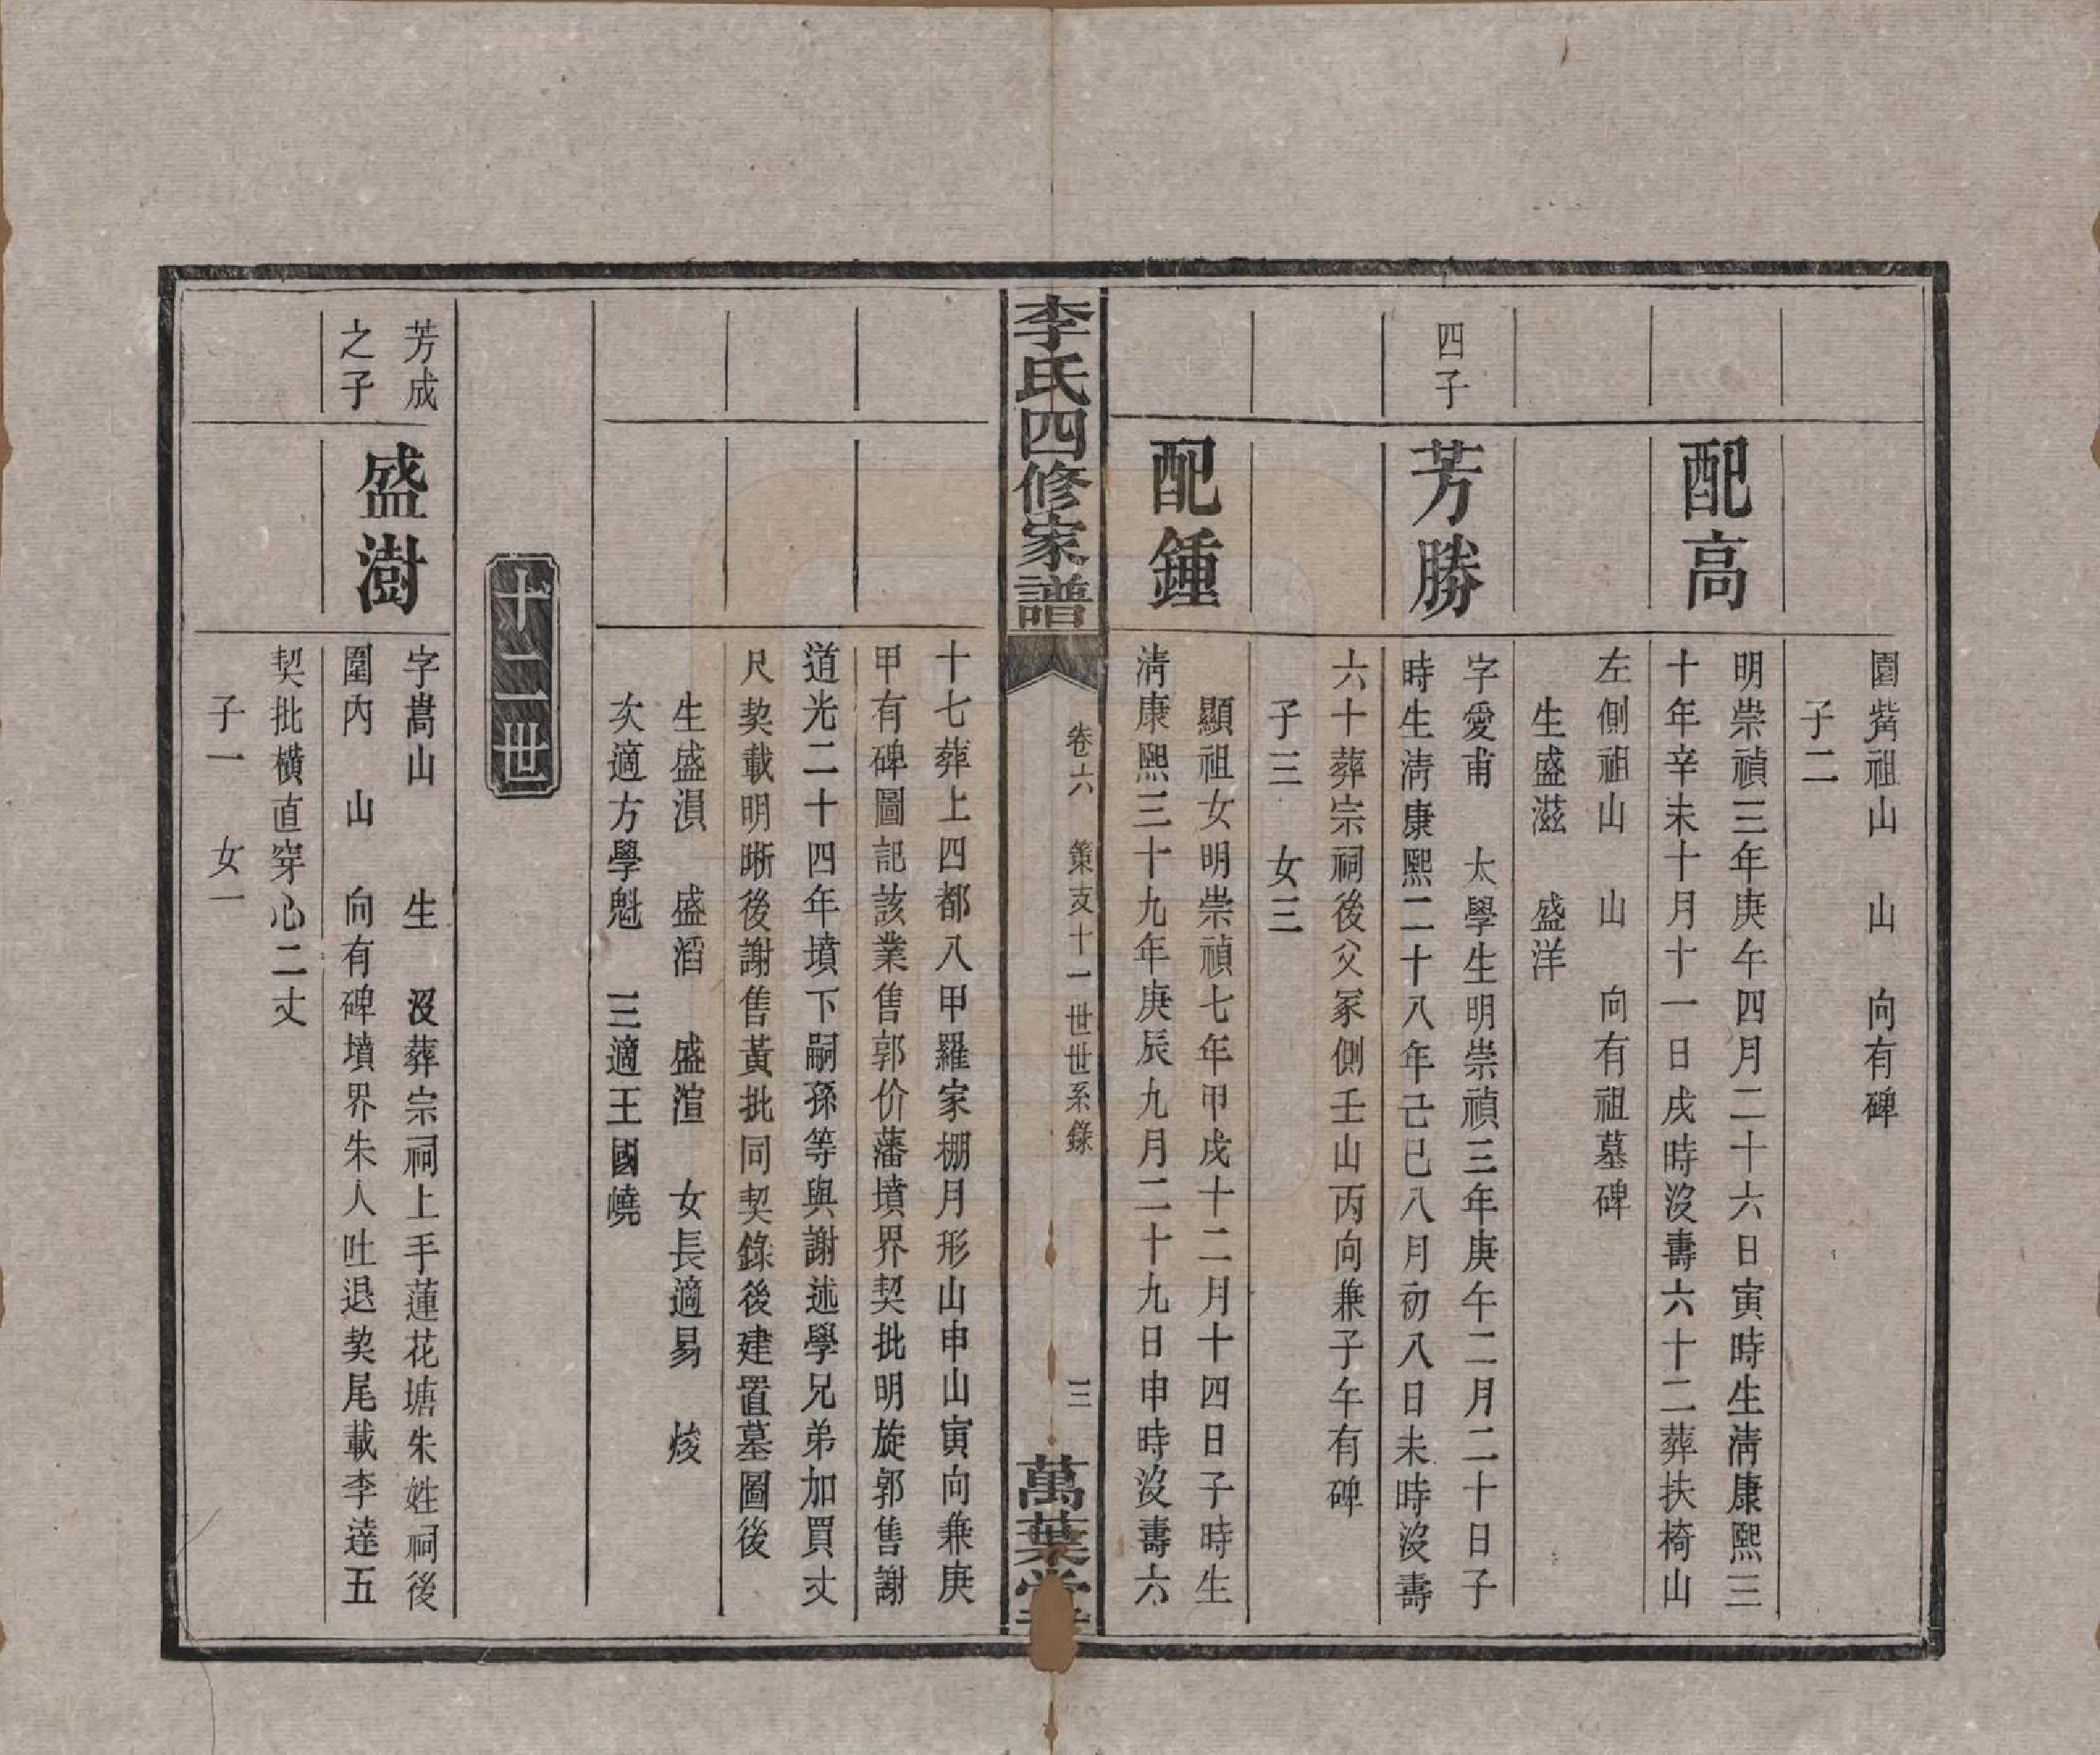 園嘴祖山　山　向有碑
子二
配高
明崇禎三年庚午四月二十六日寅時生清康熙三
十年辛未十月十一日戌時沒壽六十二葬扶椅山
左側祖山　山　向有祖墓碑
生盛滋　盛洋
四子
芳勝
字愛甫　太學生明崇禎三年庚午二月二十日子
時生清康熙二十八年己巳八月初八日未時沒壽
六十葬宗祠後父冢側壬山丙向兼子午有碑
子三　女三
配鍾
顯祖女明崇禎七年甲戌十二月十四日子時生
清康熙三十九年庚辰九月二十九日申時沒壽六
李氏四修家譜
卷六　策支十一世世系錄
三
萬葉堂
十七葬上四都八甲羅家棚月形山申山寅向兼庚
甲有碑圖記該業售郭价藩墳界契批明旋郭售謝
道光二十四年墳下嗣孫等與謝述學兄弟加買丈
尺契載明晰後謝售黃批同契錄後建置墓圖後
生盛溳　盛滔　盛渲　女長適易　焌
次適方學魁　三適王國嶢
十二世
芳成
之子
盛澍
字嵩山　生　沒葬宗祠上手蓮花塘朱姓祠後
園內　山　向有碑墳界朱人吐退契尾載李達五
契批橫直穿心二丈
子一　女一